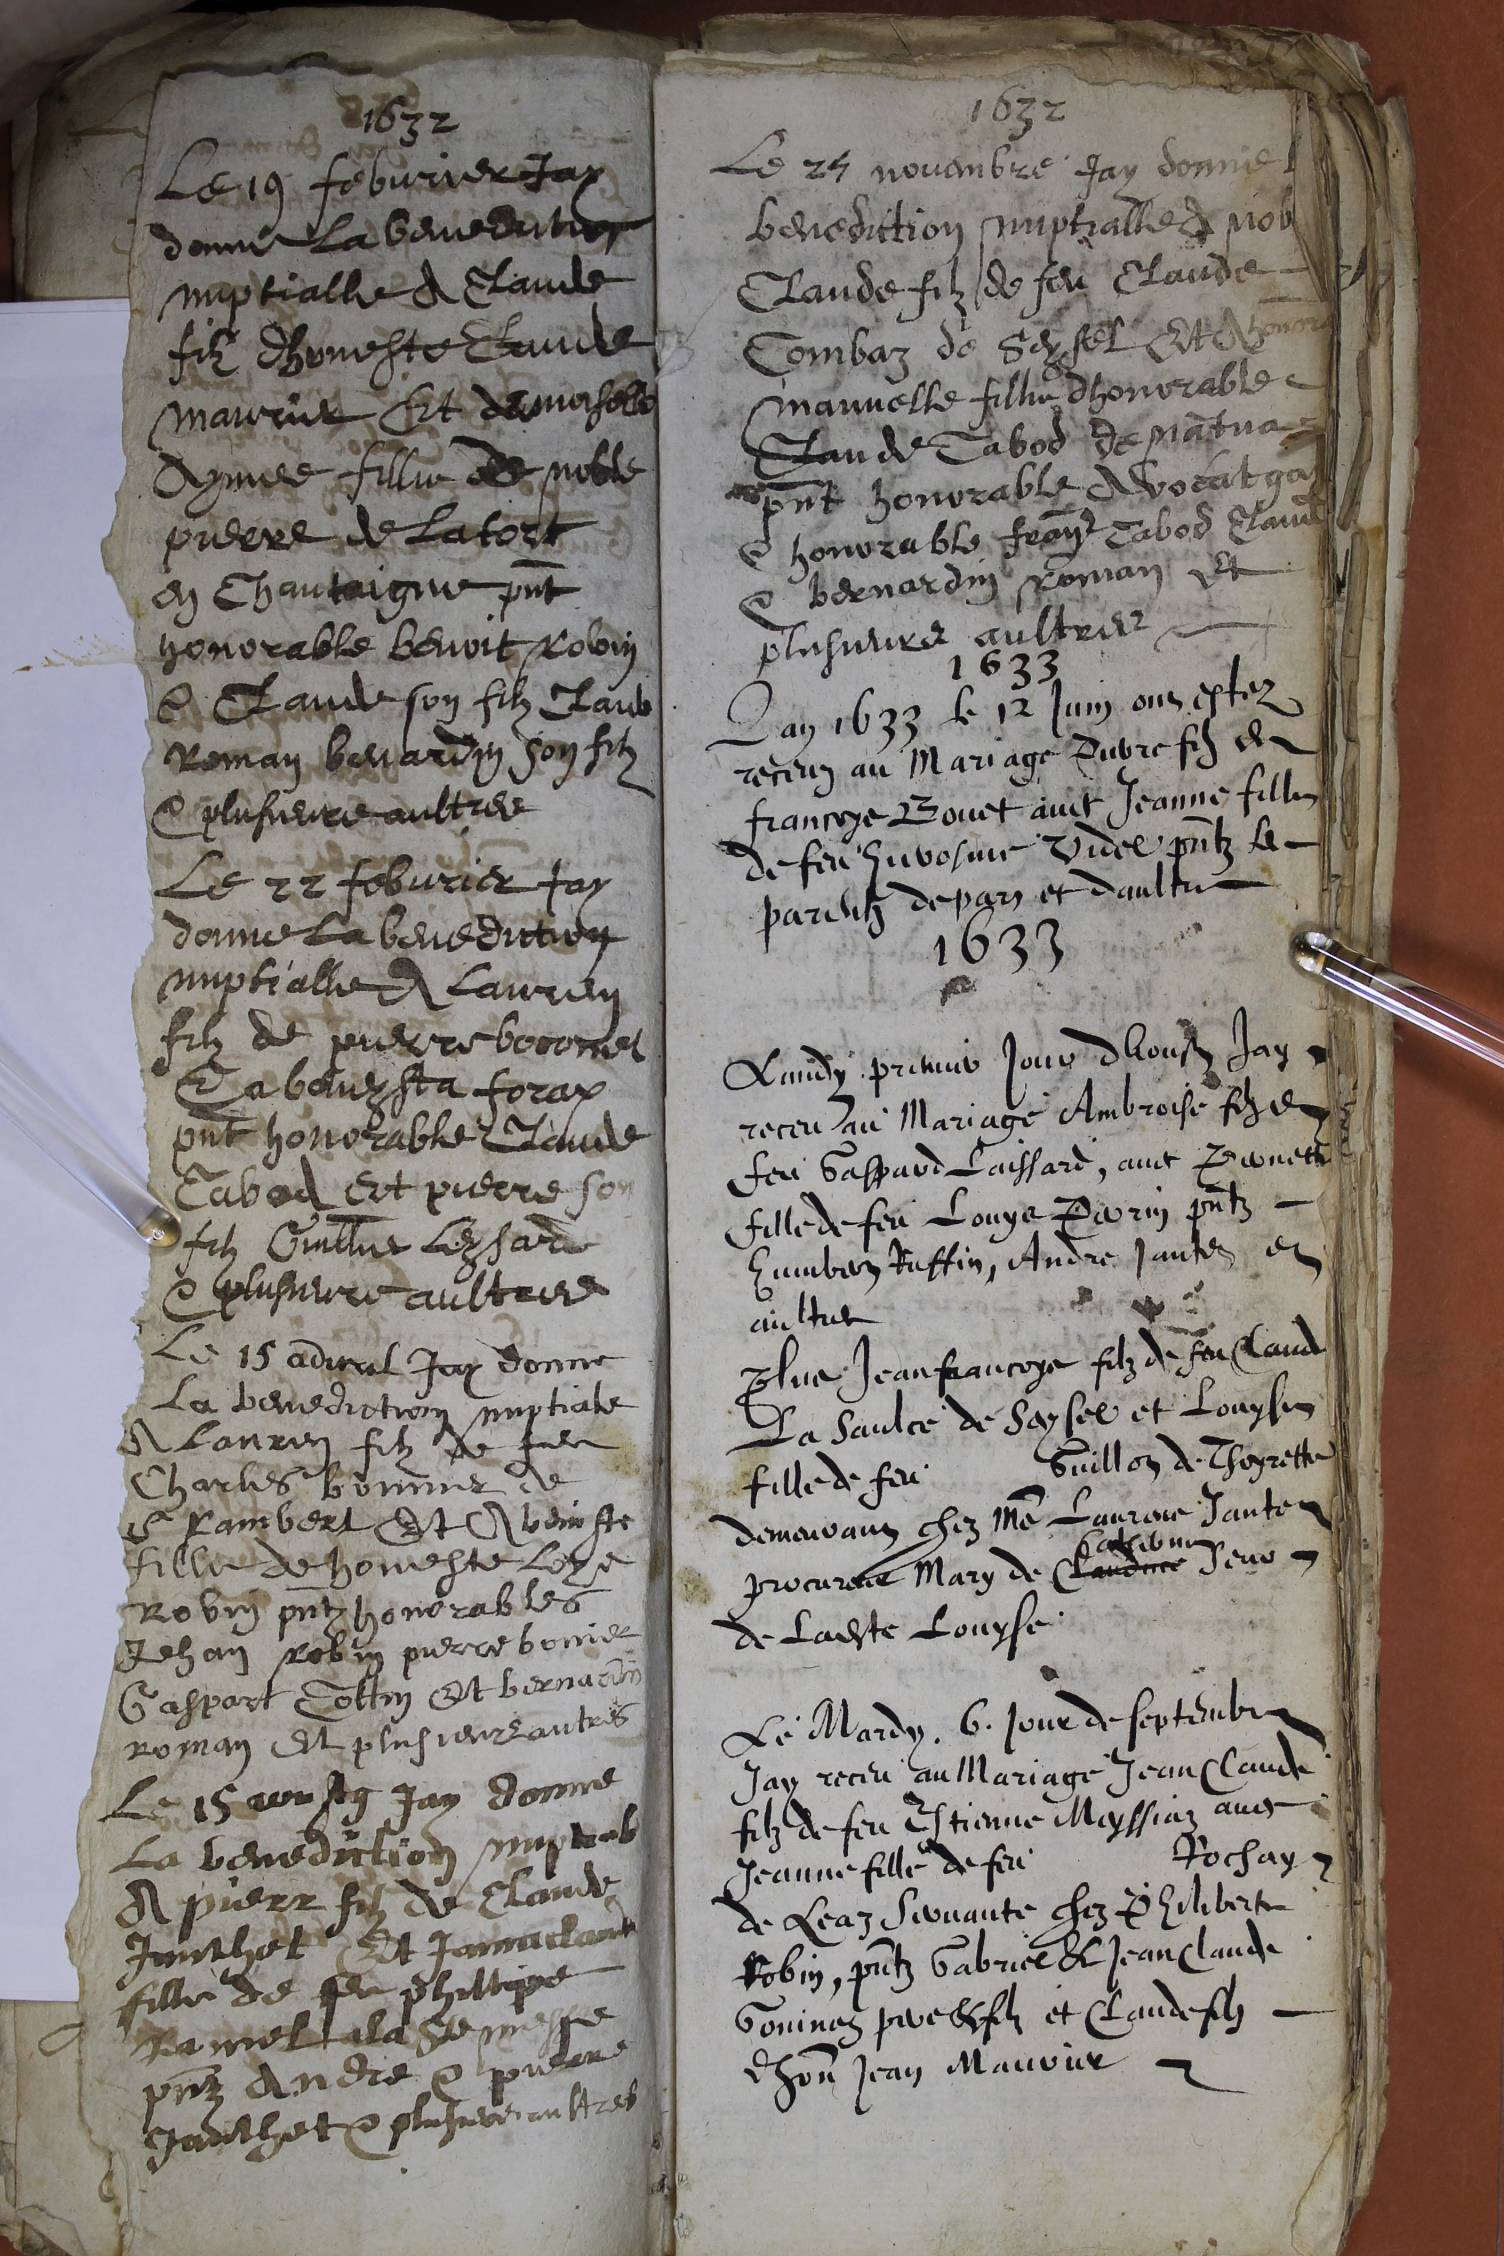 1632
Le 19 feburier Jay
donne La benediction
nuptialle A Claude
filz dhoneste Claude
maurier Et damoyselle
Aymee fillie de noble
pierre de Lafort
en Chautaigne pnt
honorable benoit Robin
& Claude son filz Claud
Roman benardin son filz
& plusieurs aultres
Le 22 feburier Jay
donne La benediction
nuptialle A Laurien
filz de pierre
pnt honorable Claude
Tabod Et pierre son
filz Guillme
& plusieurs aultres
Le 15 Jay donne
La benediction nuptiale
A Laurien filz de feu
Charles bonnier de
S Rambert Et A
fillie de honeste
Robin pntz honorables
Jehan Robin pierre bonier
Gaspart Cottin Et bernardin
Roman Et plusieurs autres
Le 15 Jay donne
La benediction
A pierr filz de Claude
Janthet Et
fille de feu philtipe
Ramel a la Ste messe
pntz Andre & pierre
Janthet & plusieurs aultres
1632
Le 24 novembre Jay donne
benediction nuptialle A nob
Claude filz de feu Claude
Combaz de Seyssel Et A honor
manuelle fillie dhonorable
Claude Tabod de
pnt honorable Avocat
& honorable franys Tabod Claud
& bernardin Roman Et
plusieurs aultres
1633
Lan 1633 le 12 Juin ons estez
receuz au Mariage filz de
francoys Bouet avec Jeanne fille
de feu pntz les
parentz de pars et daultre
1633
Lundy premier Jour dAoust Jay
receu au Mariage Ambroise filz de
feu Gaspard Laissard, avec Pernette
fille de feu Louys Perrin pntz
Humbert Ruffin, Andre Jantet et
aultres
Plus Jean francoys filz de feu Claude
La Saulce de Seyssel et Louyse
fille de feu Guillon de Thoyrette
demeurant chez Me Laurens Jantet
Catherine
procureur Mary de Claudine seur
de Ladite Louyse
Le Mardy. 6. Jour de septembre
Jay receu au Mariage Jean Claude
filz de feu Estienne Meyssiaz avec
Jeanne fille de feu Rochay
de Leaz Servante chez Philiberte
Robin, pntz Gabriel & Jean Claude
Goninet pere & filz et Claude filz
dhon Jean Maurier